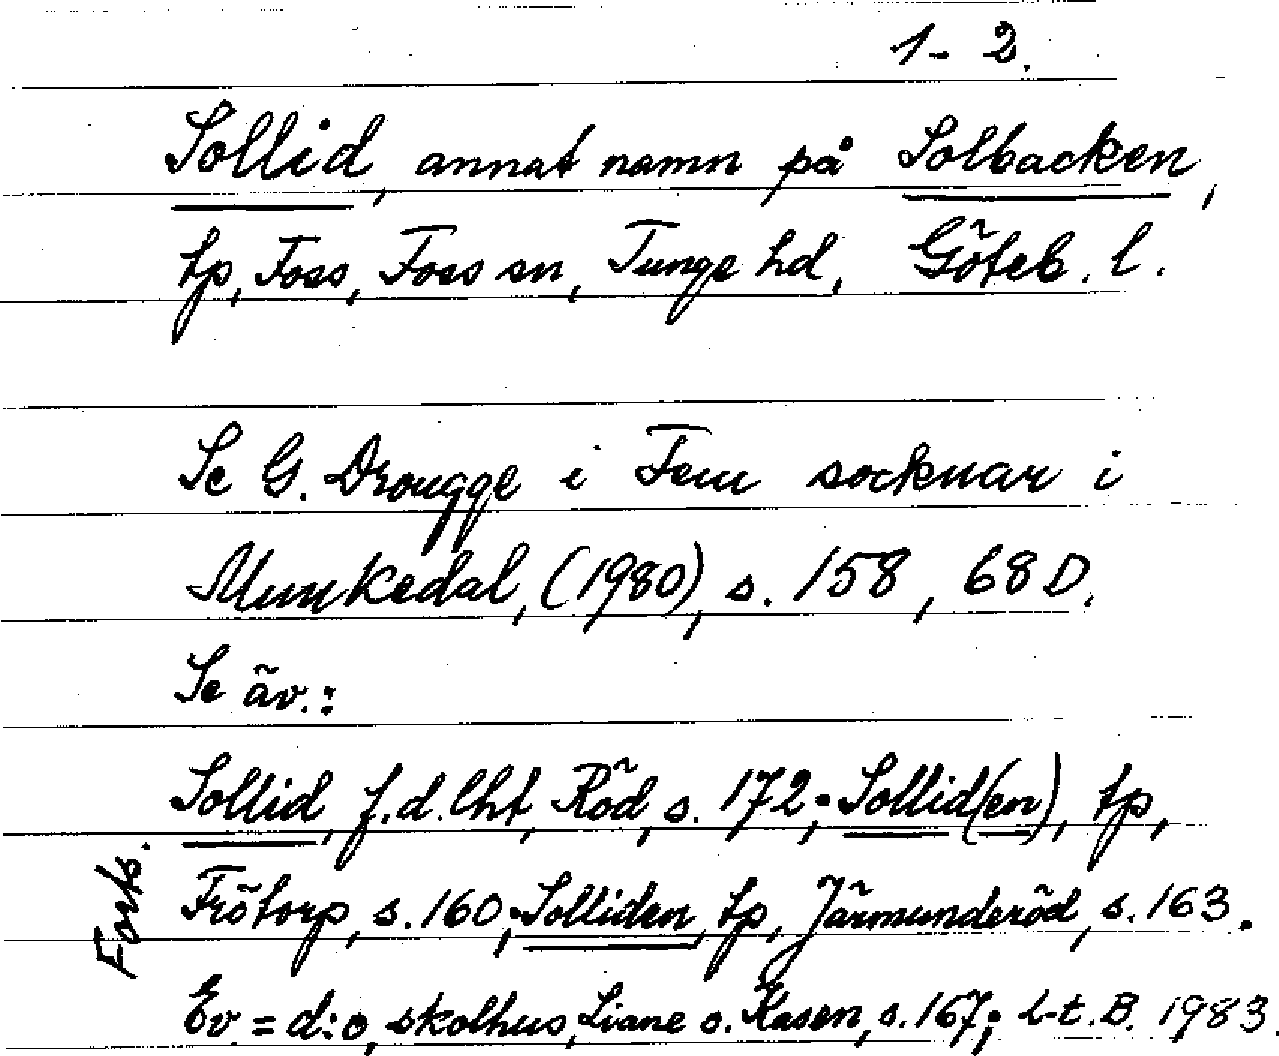 1-2.
Sollid, annat namn på Solbacken,
tp, Foss, Foss sn, Tunge hd, Göteb. l.
Se G. Drougge i Fem socknar i
Munkedal, (1980), s. 158, 68D.
Se äv.:
Sollid, f.d. lht, Röd, s. 172; Sollid(en), tp,
Frötorp, s. 160; Solliden, tp, Järmunderöd, s. 163.
Ev. = d:o, skolhus, Liane o. Kasen, s. 167; l-t. B. 1983.
Forts.